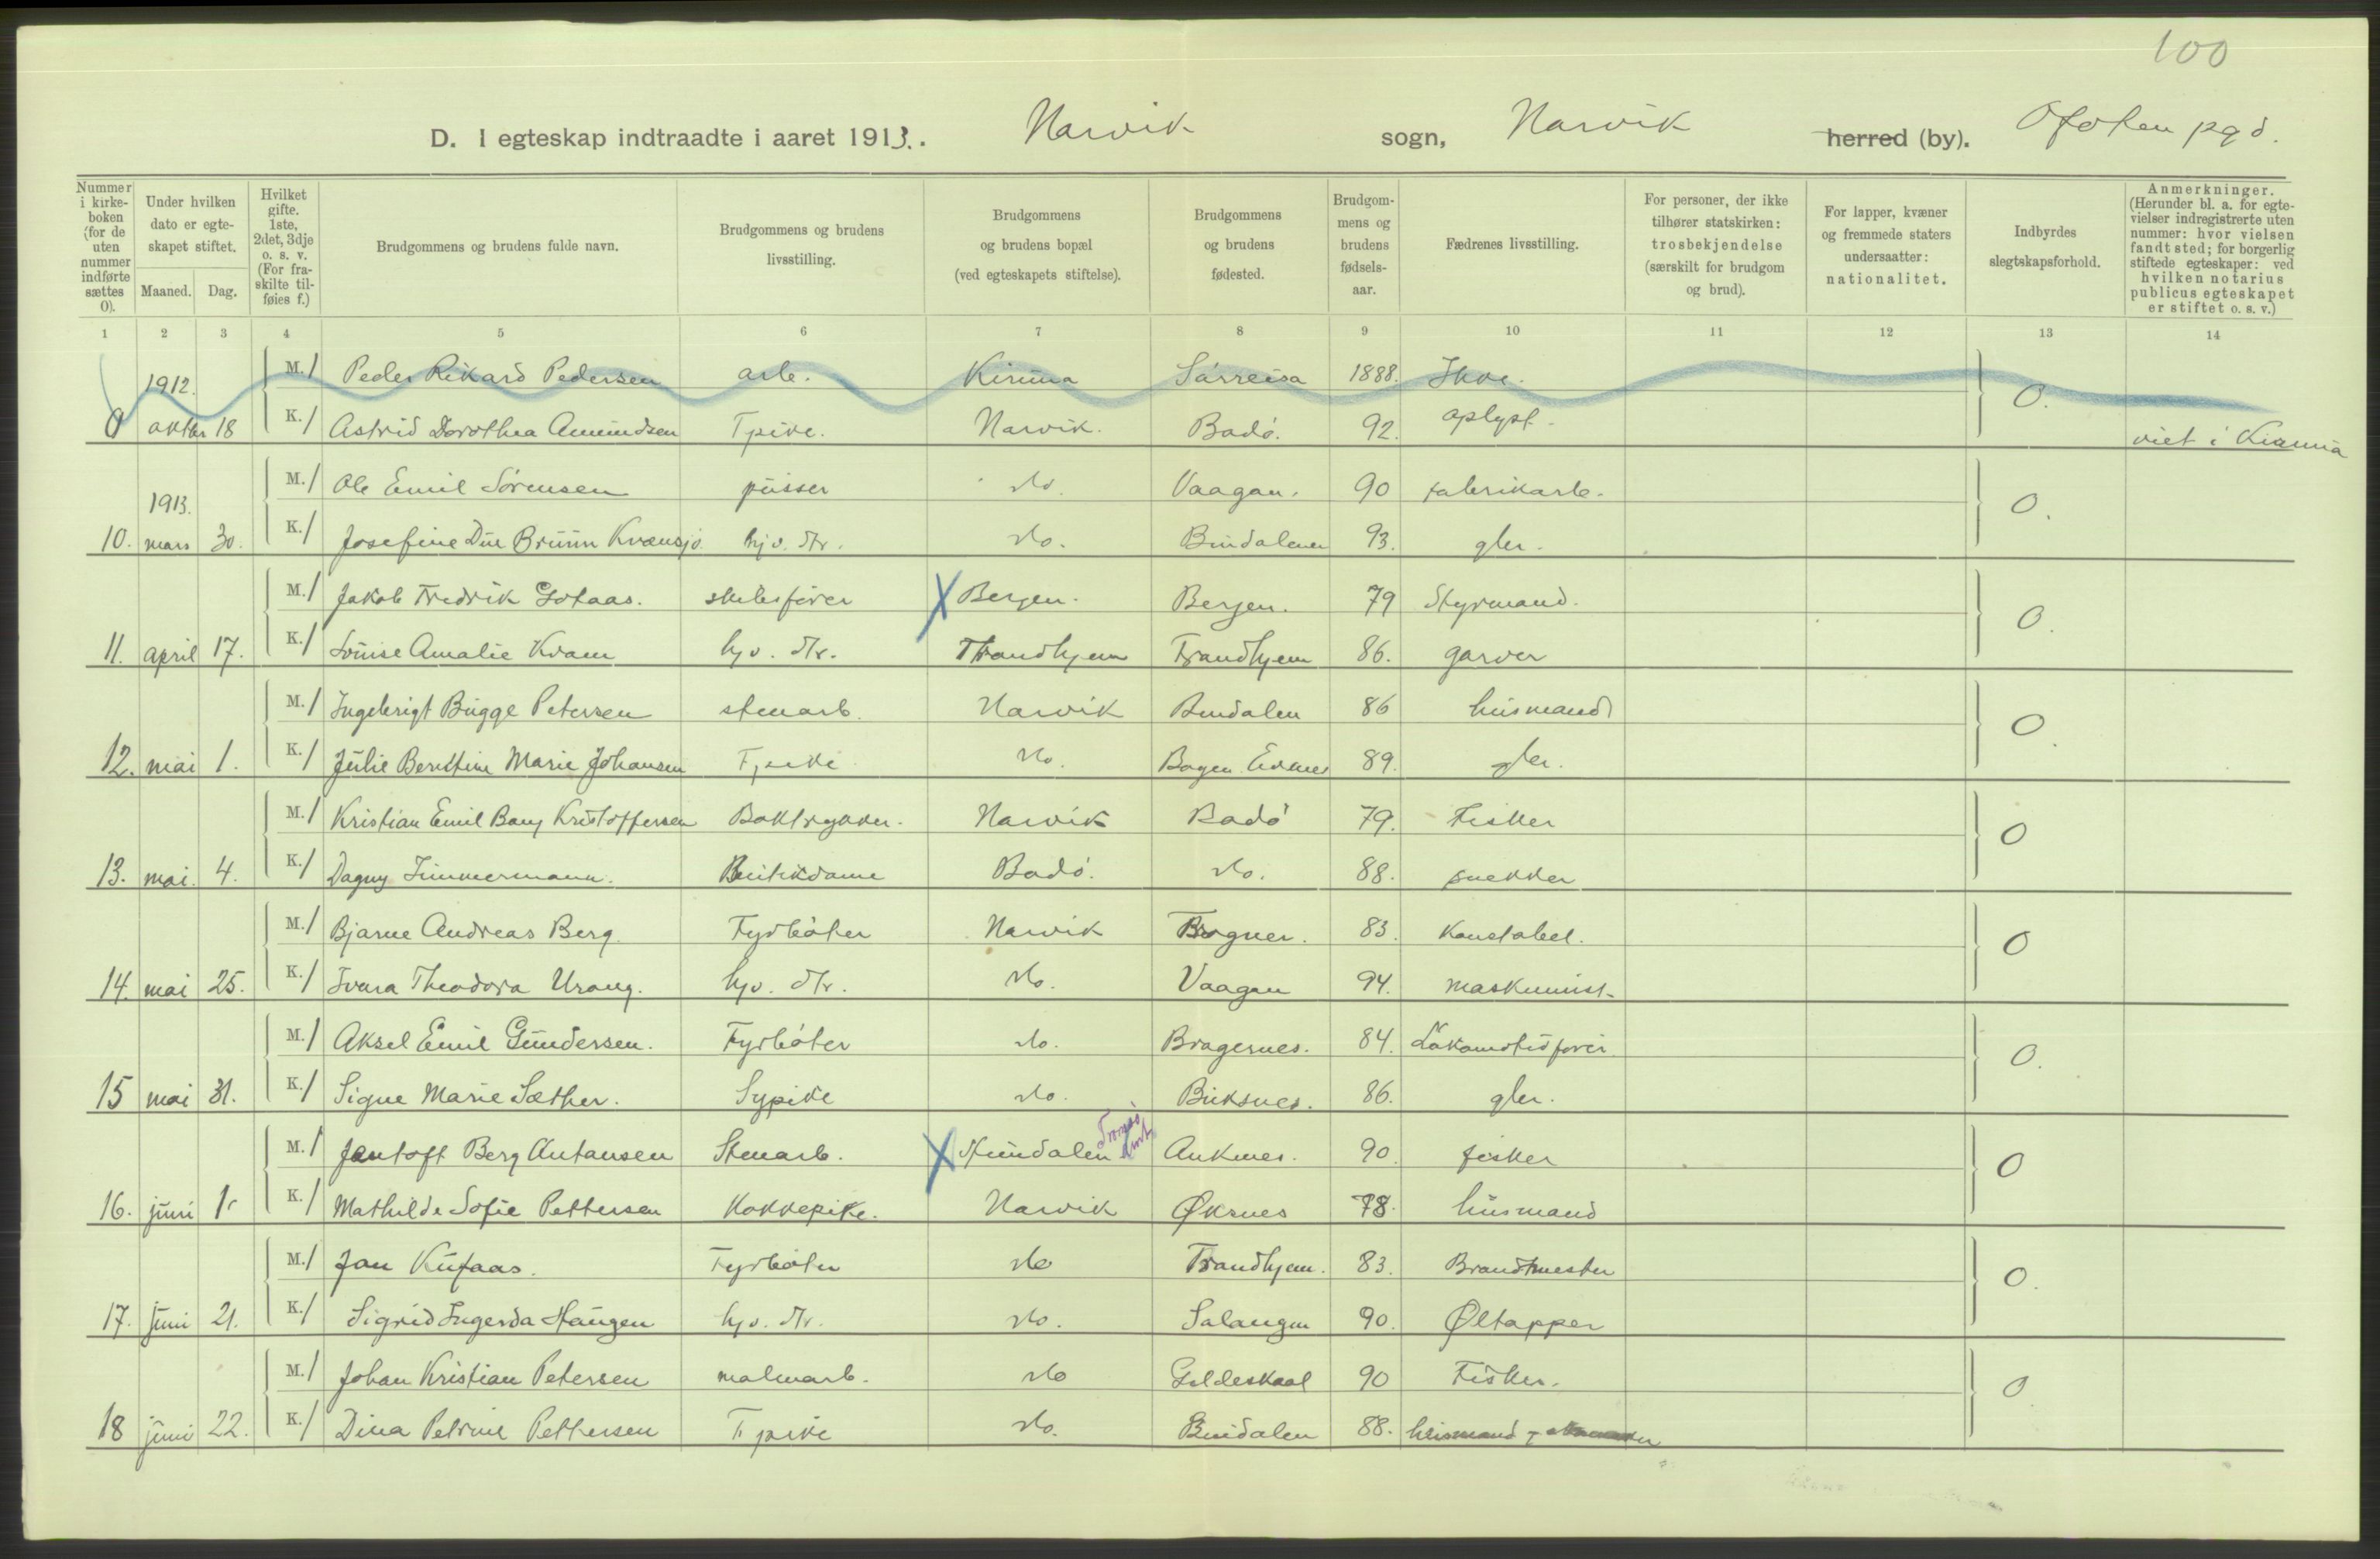 100
D. I egteskap indtraadte i aaret 1913. Narvik sogn, Narvik herred (by). Ofoten pgd.
Nummer i kirkeboken (for de uten nummer indførte sættes 0).
Under hvilken dato er egteskapet stiftet.
Maaned. Dag.
Hvilket gifte. 1ste, 2det, 3dje o. s. v. (For fraskilte tilføies f.)
Brudgommens og brudens fulde navn.
Brudgommens og brudens livsstilling.
Brudgommens og brudens bopæl (ved egteskapets stiftelse).
Brudgommens og brudens fødested.
Brudgommens og brudens fødselsaar.
Fædrenes livsstilling.
For personer, der ikke tilhører statskirken: trosbekjendelse (særskilt for brudgom og brud).
For lapper, kvæner og fremmede staters undersaatter: nationalitet.
Indbyrdes slegtskapsforhold.
Anmerkninger. (Herunder bl. a. for egtevielser indregistrerte uten nummer: hvor vielsen fandt sted; for borgerlig stiftede egteskaper: ved hvilken notarius publicus egteskapet er stiftet o. s. v.)
1 2 3 4 5 6 7 8 9 10 11 12 13 14
1912. M. 1 Peder Rikard Pedersen arb. Kiruna Sørreisa 1888. 0.
0 oktbr 18 K. 1 Astrid Dorothea Amundsen Tpike. Narvik. Bodø. 92. oplyst. viet i Kiruna
1913. M. 1 Ole Emil Sørensen pusser do. Vaagan. 90 fabrikarb. 0.
10. mars 30. K. 1 Josefine Due Bruun Kvænsjø hj v. dtr. do. Bindalen 93. gbr.
M. 1 Jakob Fredrik Gotaas. skibsfører X Bergen. Bergen. 79 Styrmand. 0.
11. april 17. K. 1 Louise Amalie Kvam hjv. dtr. Trondhjem Trondhjem 86. garver
M. 1 Ingebrigt Bugge Petersen stenarb. Narvik Bindalen 86 husmand 0.
12. mai 1. K. 1 Julie Berettine Marie Johansen Tjpike do. Bogen Evenes 89. gbr.
M. 1 Kristian Emil Bang Kristoffersen Boktrykker. Narvik Bodø 79. Fisker 0
13. mai. 4. K. 1 Dagny Zimmermann. Butikdame Bodø. do. 88. snekker
M. 1 Bjarne Andreas Berg. Fyrbøter Narvik Bragner. 83. Konstabel. 0
14. mai 25. K. 1 Ivara Theodora Urang. hjv. dtr. do. Vaagan 94. maskinist.
M. 1 Aksel Emil Gundersen. Fyrbøter do. Bragernes. 84. Lokomotivfører 0.
15 mai 31. K. 1 Signe Marie Sæther. Sypike do. Buksnes. 86. gbr.
M. 1 Jentoft Berg Antonsen Stenarb. X Hundalen Tromsø amt Ankenes. 90. fisker 0
16. juni 1. K. 1 Mathilde Sofie Pettersen Kokkepike. Narvik Øksnes 78. husmand
M. 1 Jan Kufaas. Fyrbøter do Trondhjem. 83. Brandmester 0.
17. juni 21. K. 1 Sigrid Ingerda Haugen hjv. dtr. do. Salangen 90. Øltapper
M. 1 Johan Kristian Petersen malmarb. do Gildeskaal 90 Fisker. 0.
18 juni 22. K. 1 Dina Petrine Pettersen Tjpike do. Bindalen 88. husmand